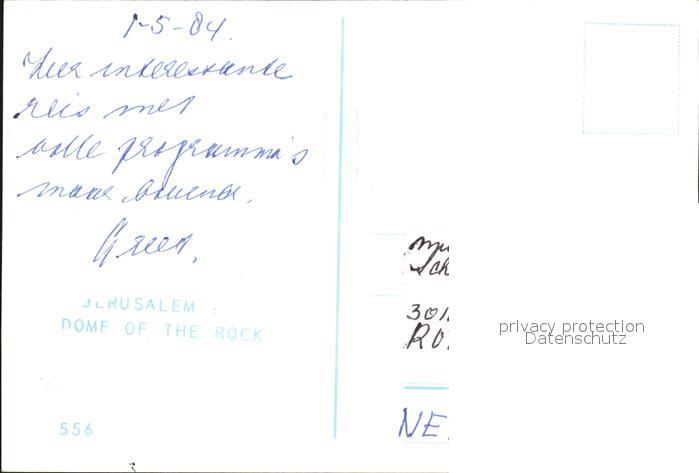 1-5-84.
Zeer interessante
reis met
volle programma's
maar boeiend.
Greet.
JERUSALEM :
DOME OF THE ROCK
556
Sch
301
RO
NE
privacy protection
Datenschutz